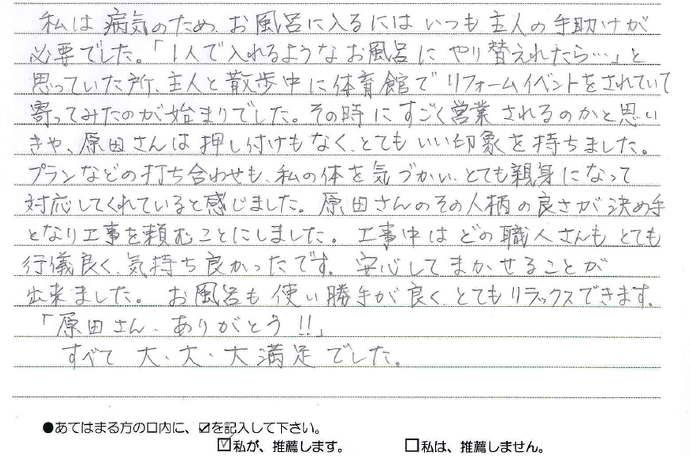 私は病気のため、お風呂に入るにはいつも主人の手助けが
必要でした。「1人で入れるようなお風呂にやり替えれたら…」と
思っていた所、主人と散歩中に体育館でリフォームイベントをされていて
寄ってみたのが始まりでした。その時にすごく営業されるのかと思い
きや、原田さんは押し付けもなく、とてもいい印象を持ちました。
プランなどの打ち合わせも、私の体を気づかい、とても親身になって
対応してくれていると感じました。原田さんのその人柄の良さが決め手
となり工事を頼むことにしました。工事中はどの職人さんもとても
行儀良く、気持ち良かったです。安心してまかせることが
出来ました。お風呂も使い勝手が良く、とてもリラックスできます。
「原田さん、ありがとう!!」
すべて大・大・大満足でした。
●あてはまる方の口内に、☑を記入して下さい。
☑私が、推薦します。 □私は、推薦しません。